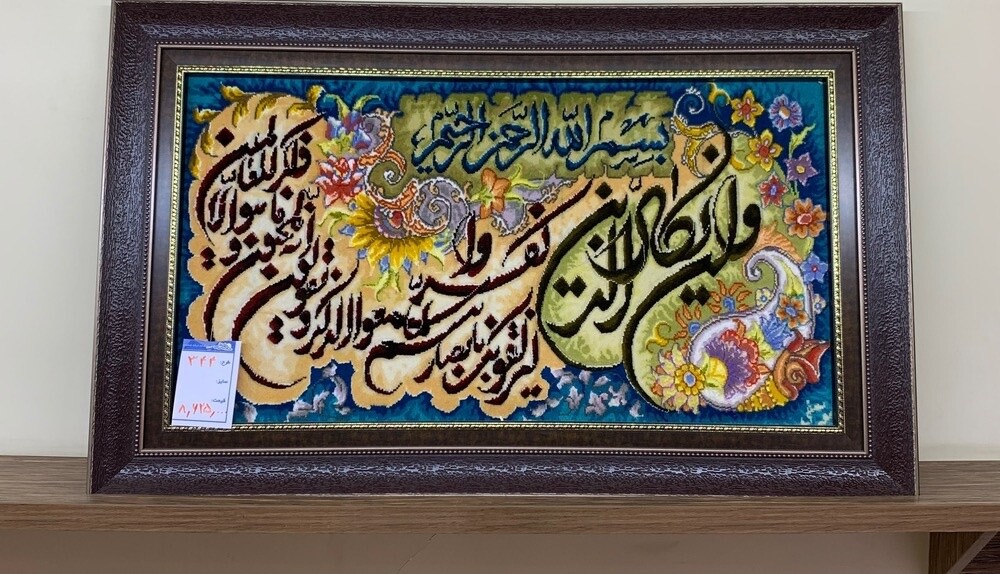 بسم الله الرحمن الرحیم
وان یکاد الذین
کفروا
لیزلقونک بابصارهم
لما سمعوا الذکر و یقولون
انه لمجنون و
ما هو الا
ذکر للعالمین
طرح: ۳۴۴
سایز:
قیمت:
۸,۶۲۵,۰۰۰